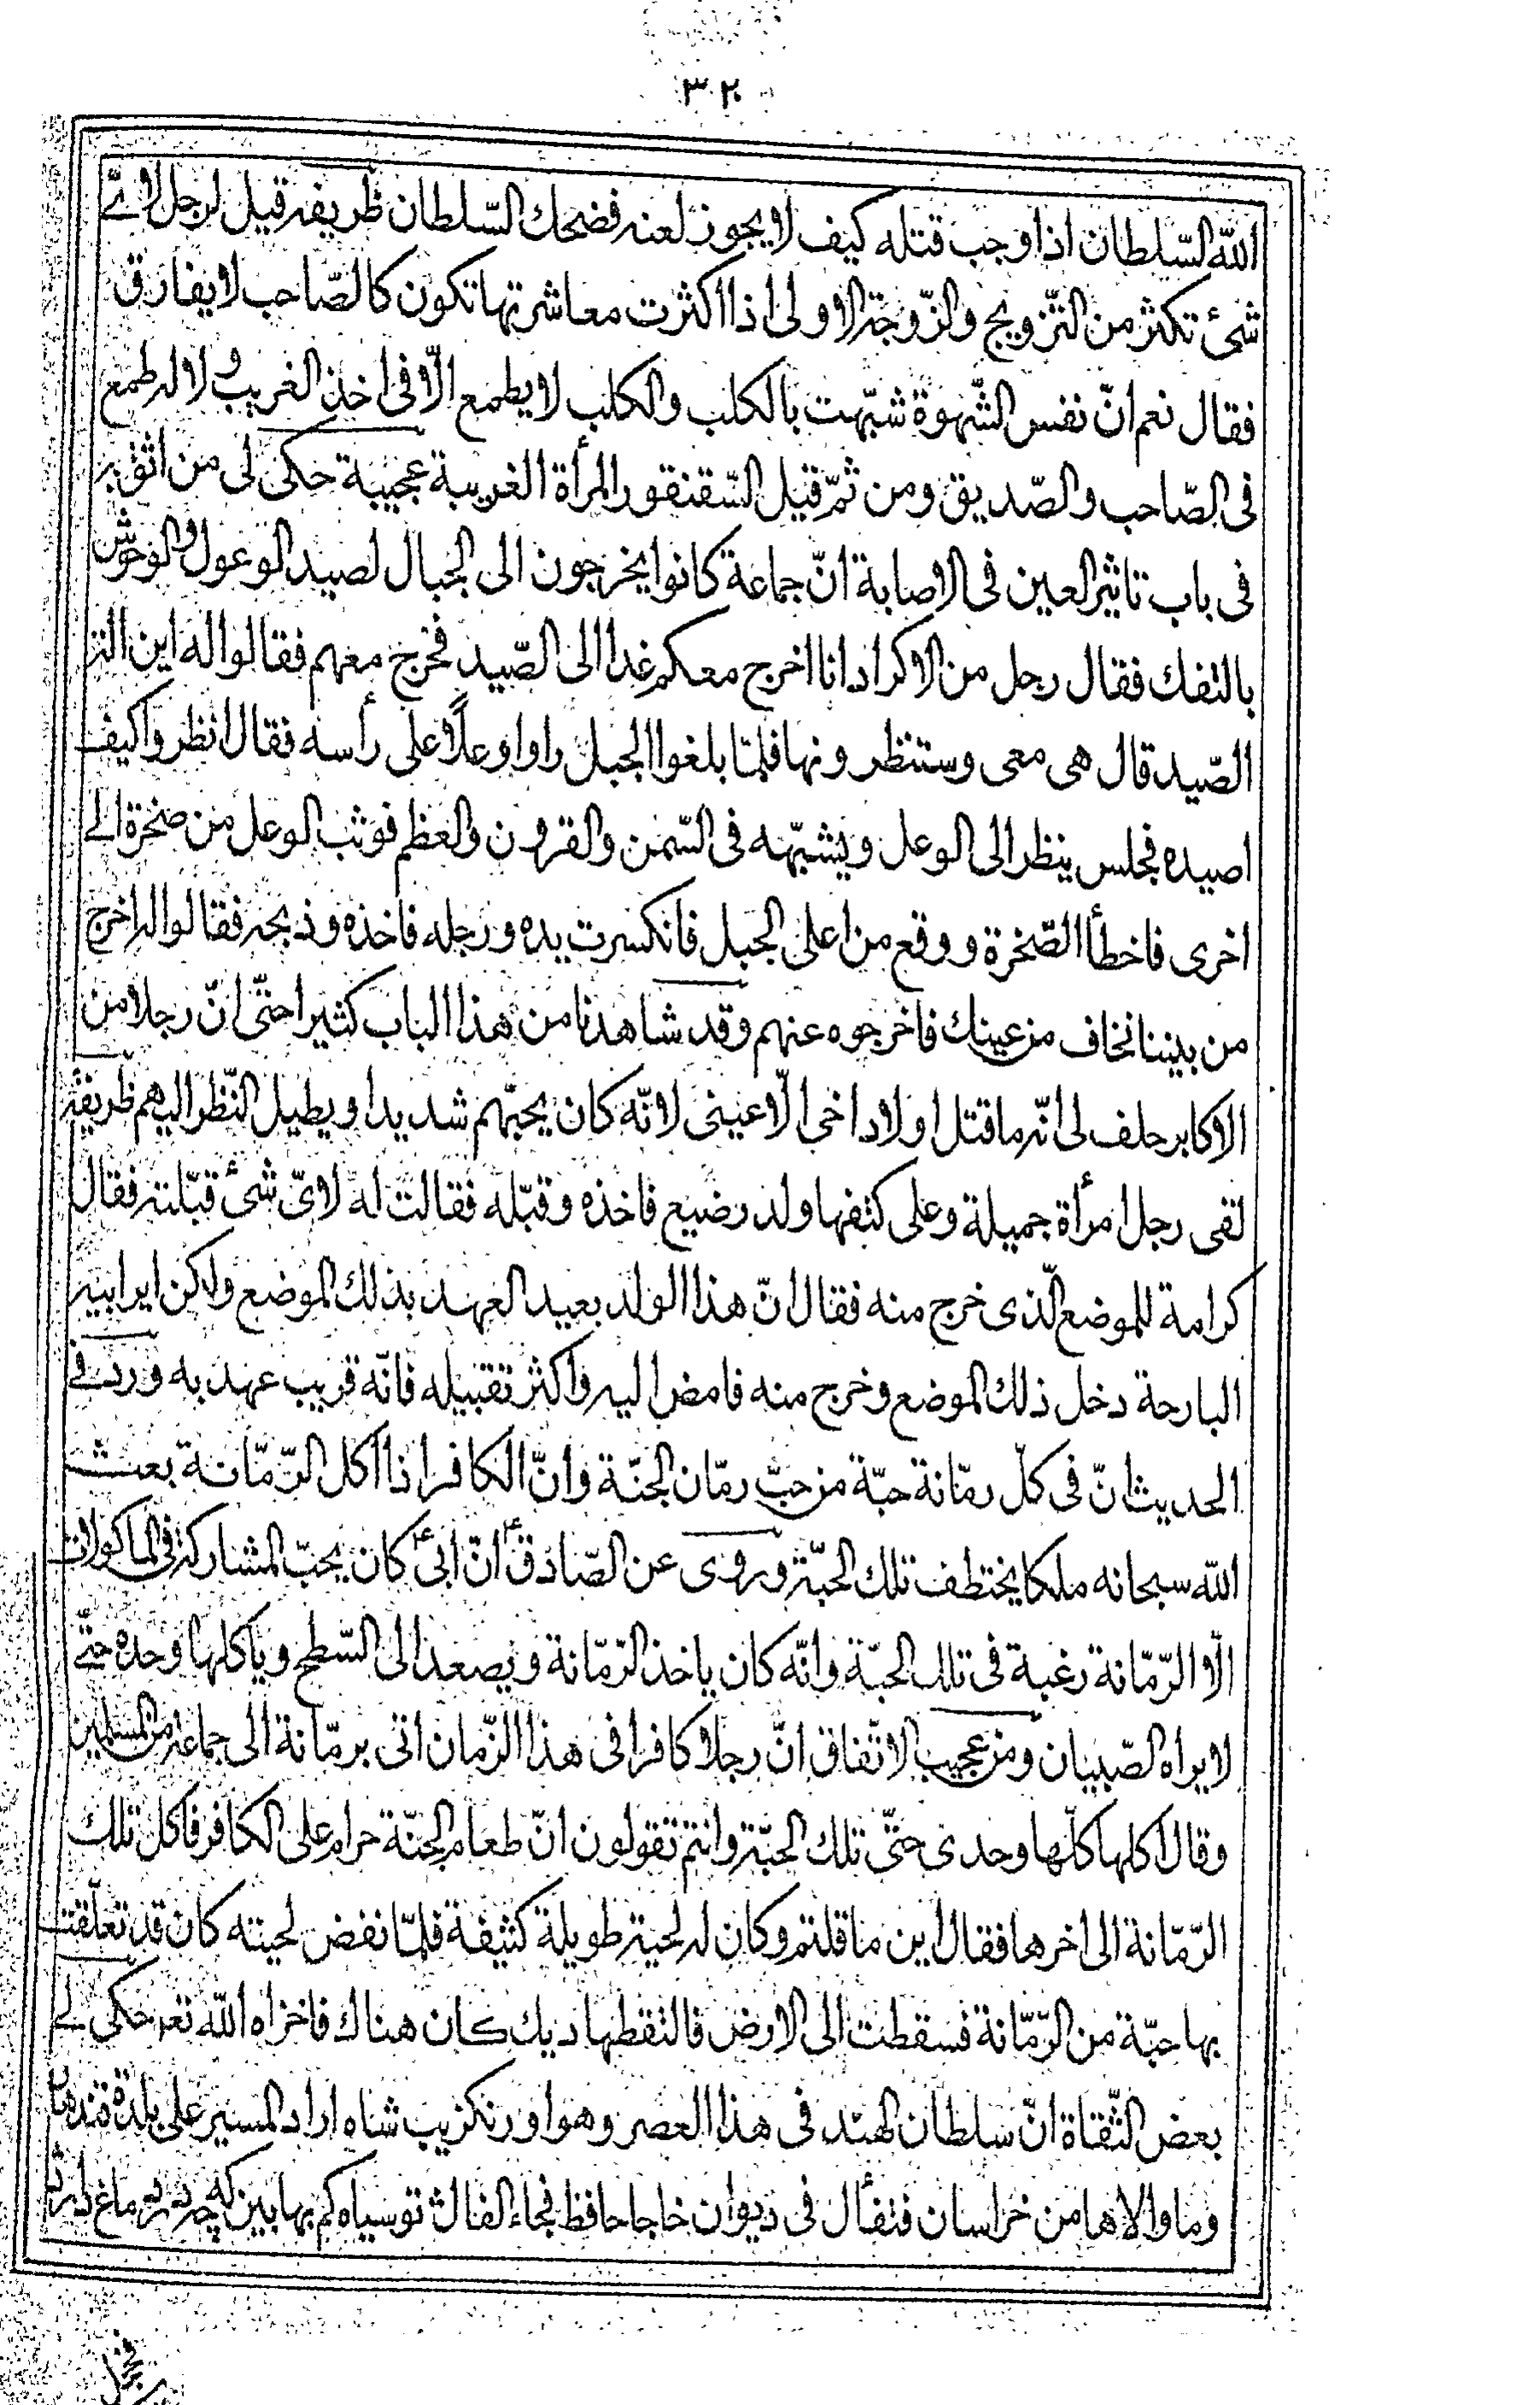 ٣٢٠
الله السّلطان اذا وجب قتله كيف لا يجوز لعنه فضحك السّلطان ظريفه قيل لرجل لائ
شئ تكثر من التّزويج والزّوجة الاولى اذا اكثرت معاشرتها تكون كالصّاحب لا يفارق
فقال نعم انّ نفس الشّهوة شبّهت بالكلب والكلب لا يطمع الّا فى اخذ الغريب ولا له طمع
فى الصّاحب والصّديق ومن ثمّ قيل السّقنقور المرأة الغريبة عجيبة حكى لى من اثق به
فى باب تاثير العين فى الاصابة انّ جماعة كانوا يخرجون الى الجبال لصيد الوعول والوحوش
بالتفك فقال رجل من الاكراد انا اخرج معكم غدا الى الصّيد فخرج معهم فقالوا له اين الة
الصّيد قال هى معى وستنظرونها فلمّا بلغوا الجبل راوا وعلًا على رأسه فقال انظروا كيف
اصيده فجلس ينظر الى الوعل ويشبّهه فى السّمن والقرون والعظم فوثب الوعل من صخرة الى
اخرى فاخطأ الصّخرة ووقع من اعلى الجبل فانكسرت يده ورجله فاخذه وذبحه فقالوا له اخرج
من بيننا نخاف من عينك فاخرجوه عنهم وقد شاهدنا من هذا الباب كثيرا حتّى انّ رجلا من
الاكابر حلف لى انّه ما قتل اولاد اخى الّا عينى لانّه كان يحبّهم شديدا ويطيل النّظر اليهم ظريفة
لقى رجل امرأة جميلة وعلى كتفها ولد رضيع فاخذه وقبّله فقالت له لاىّ شئ قبّلته فقال
كرامة للموضع الّذى خرج منه فقال انّ هذا الولد بعيد العهد بذلك الموضع ولكن اير ابيه
البارحة دخل ذلك الموضع وخرج منه فامض اليه واكثر تقبيله فانّه قريب عهد به ورد فى
الحديث انّ فى كلّ رمّانة حبّة من حبّ رمّان الجنّة وانّ الكافر اذا اكل الرّمّانة بعث
الله سبحانه ملكا يختطف تلك الحبّة وروى عن الصّادق ع انّ ابى ع كان يحبّ المشاركة فى الماكولات
الّا الرّمّانة رغبة فى تلك الحبّة وانّه كان ياخذ الرّمّانة ويصعد الى السّطح وياكلها وحده حتّى
لا يراه الصّبيان ومن عجيب الاتّفاق انّ رجلا كافرا فى هذا الزّمان اتى برمّانة الى جماعة من المسلمين
وقال اكلها كلّها وحدى حتّى تلك الحبّة وانتم تقولون انّ طعام الجنّة حرام على الكافر فاكل تلك
الرّمّانة الى اخرها فقال اين ما قلتم وكان له لحية طويلة كثيفة فلمّا نفض لحيته كان قد تعلّقت
بها حبّة من الرّمّانة فسقطت الى الارض فالتقطها ديك كان هناك فاخزاه الله تعه حكى لى
بعض الثّقاة انّ سلطان الهند فى هذا العصر وهو اورنكزيب شاه اراد المسير على بلدة قندهار
وما والاها من خراسان فتفأل فى ديوان خاجا حافظ فجاء الفال ث تو سياه كم بها بين كه چه در دماغ دارد